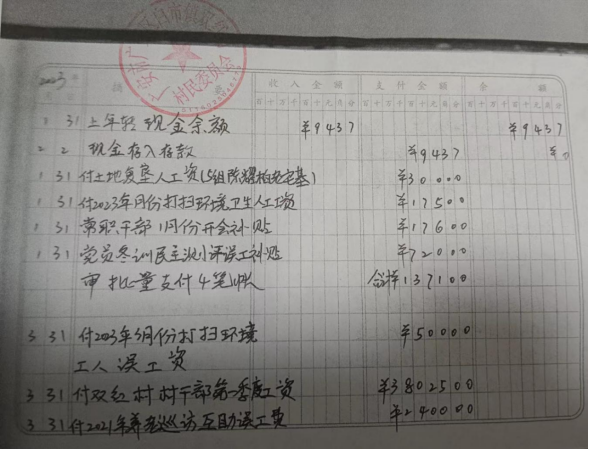 村民委员会
2023年
收入金额 支付金额 余额
百十万千百十元角分 百十万千百十元角分 百十万千百十元角分
1 31 上年转现金余额 ¥9437 ¥9437
2 2 现金存入存款 ¥9437 ¥0
1 31 付土地复垦人工资(5组陈耀柏老宅基) ¥30000
1 31 付2023年1月份打扫环境卫生人工资 ¥17500
1 31 常职干部1月份开会补贴 ¥17600
1 31 党员冬训民主测评误工补贴 ¥72000
审批量支付4笔账 合计137100
3 31 付2023年3月份打扫环境 ¥50000
工人误工资
3 31 付双红村村干部第一季度工资 ¥3802500
3 31 付2021年养老巡访互助误工费 ¥240000